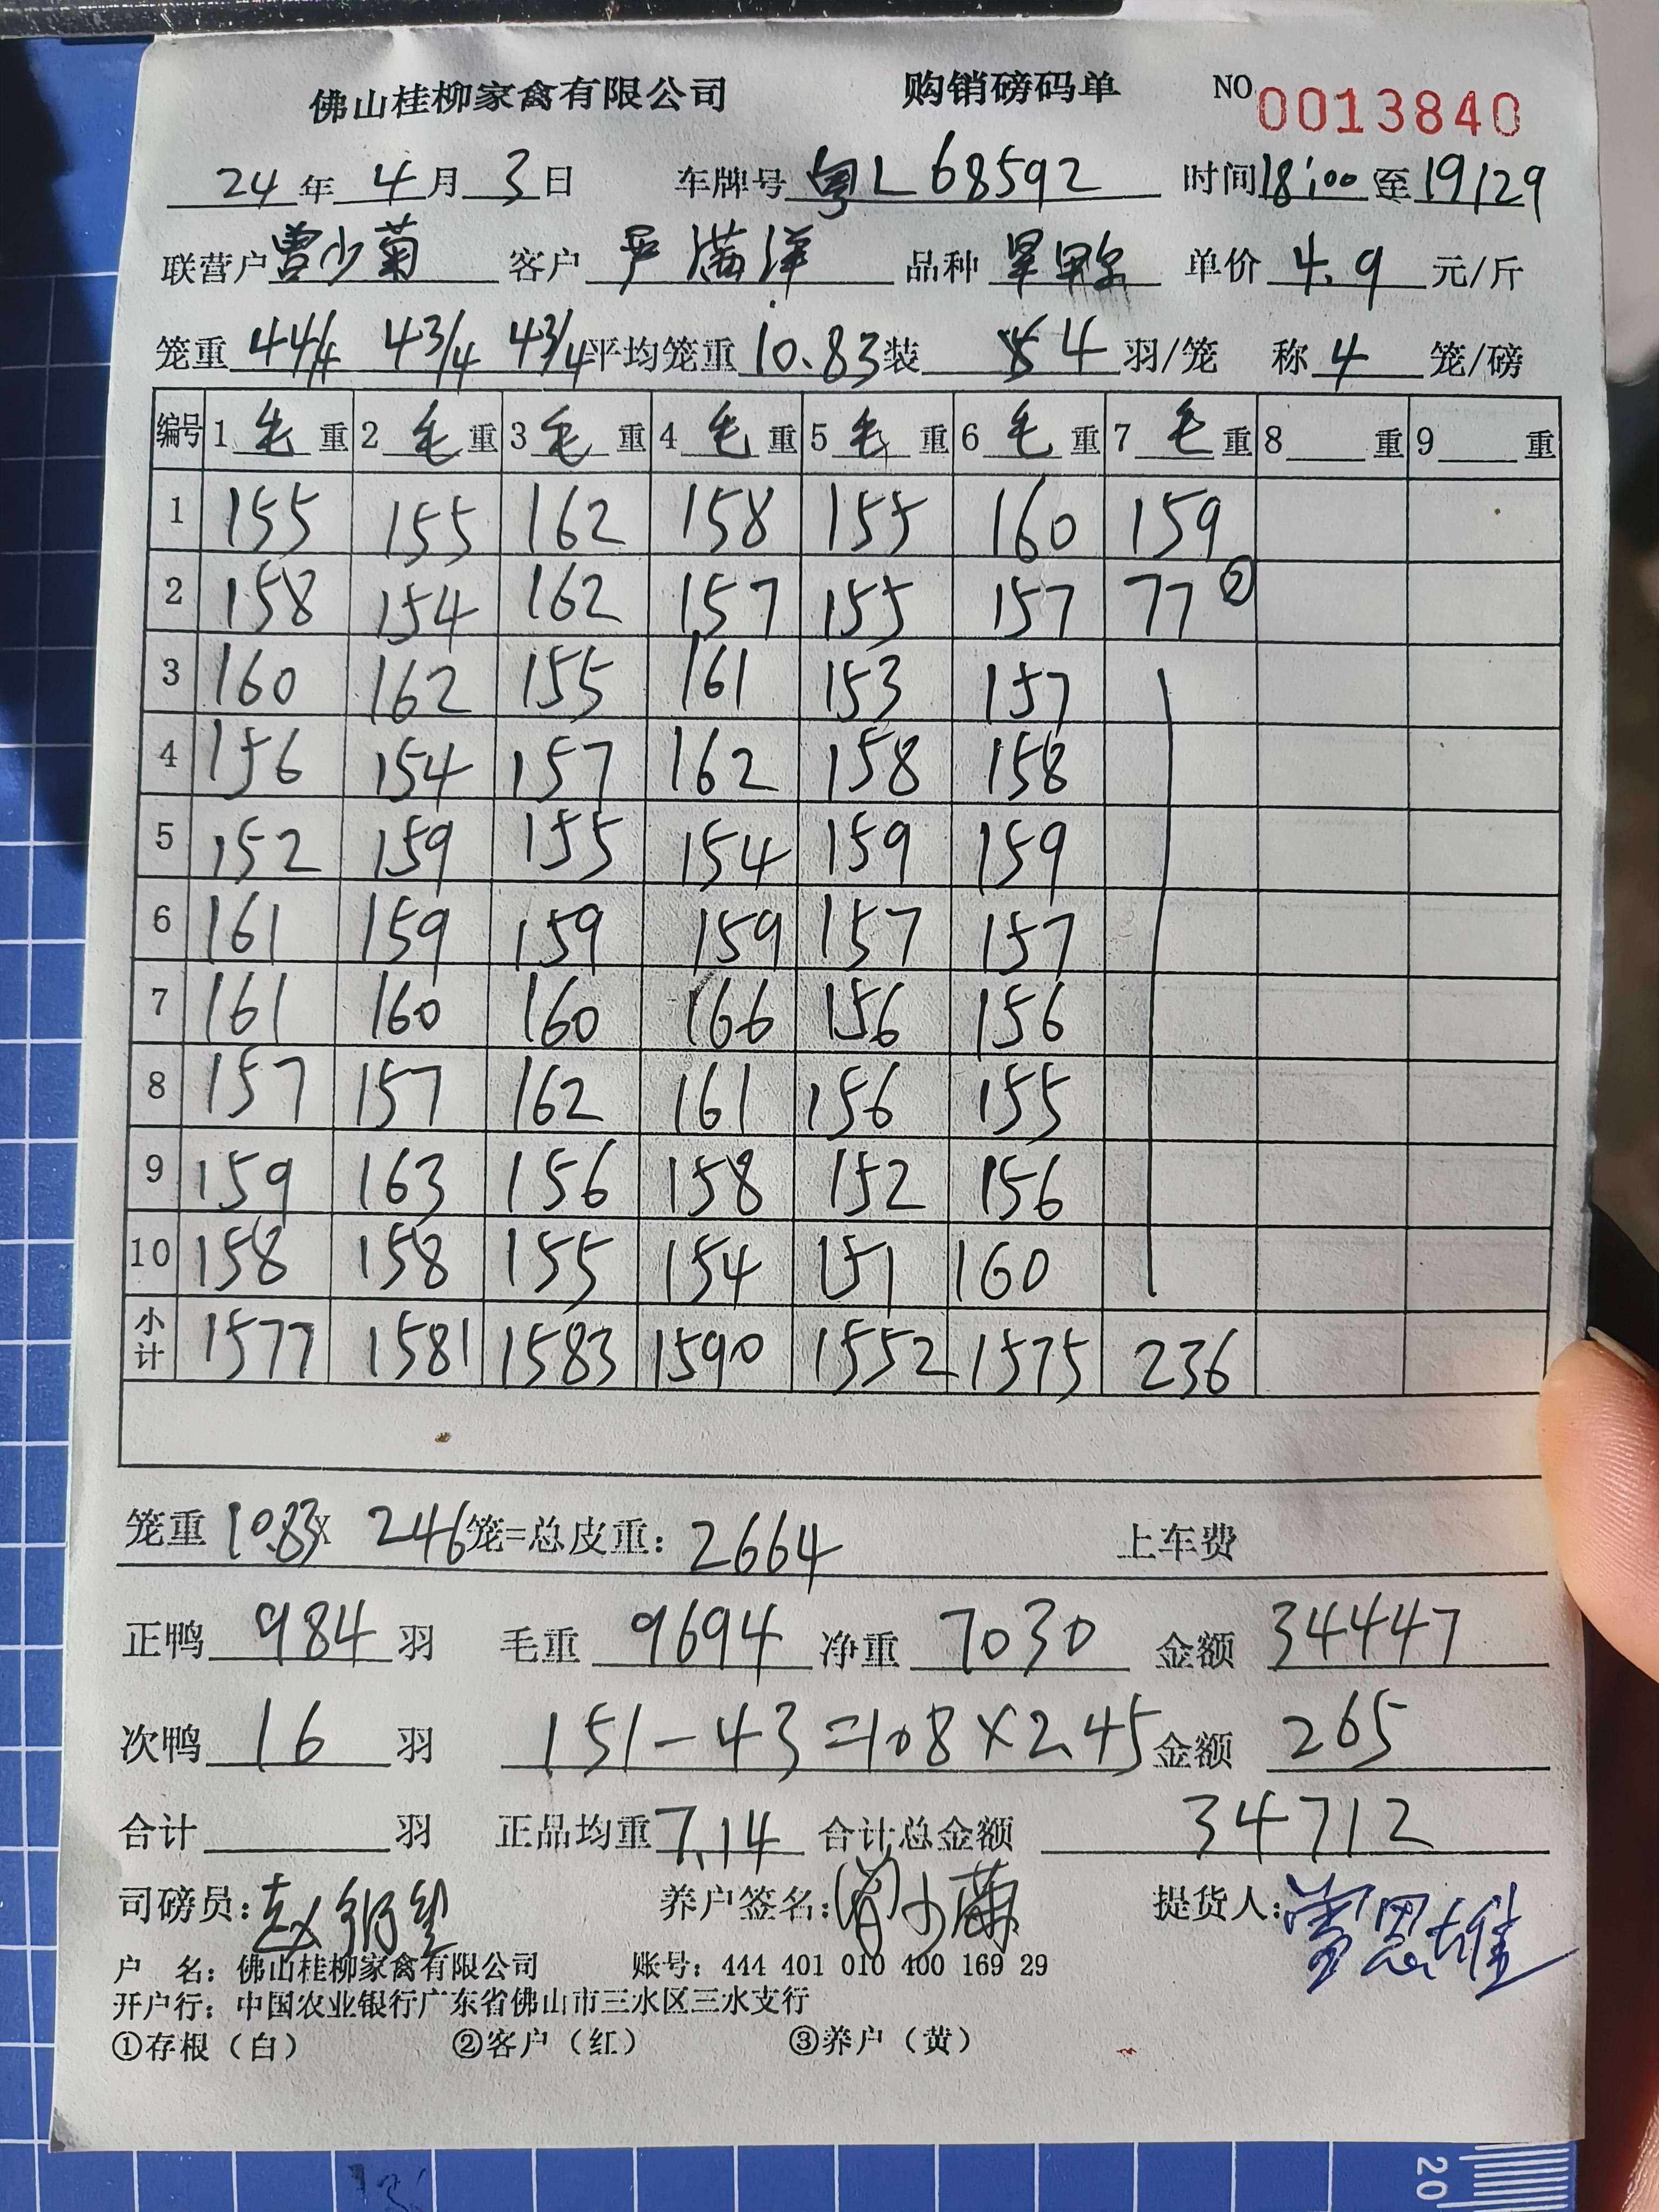 佛山桂柳家禽有限公司 购销磅码单 NO 0013840
24年4月3日 车牌号 粤L68592 时间18:00至19:29
联营户 曹少菊 客户 严满洋 品种 单价 4.9 元/斤
笼重 44/4 43/4 43/4 平均笼重 10.83 装 4 羽/笼 称 4 笼/磅
编号 1 毛 重 2 毛 重 3 毛 重 4 毛 重 5 毛 重 6 毛 重 7 毛 重 8 重 9 重
1 155 155 162 158 155 160 159
2 158 154 162 157 155 157 77 ②
3 160 162 155 161 153 157
4 156 154 157 162 158 158
5 152 159 155 154 159 159
6 161 159 159 159 157 157
7 161 160 160 166 156 156
8 157 157 162 161 156 155
9 159 163 156 158 152 156
10 158 158 155 154 151 160
小计 1577 1581 1583 1590 1552 1575 236
笼重 10.83 X 246 笼=总皮重: 2664 上车费
正鸭 984 羽 毛重 9694 净重 7030 金额 34447
次鸭 16 羽 151-43=108×2.45 金额 265
合计 羽 正品均重 7.14 合计总金额 34712
司磅员: 养户签名: 提货人:
户 名: 佛山桂柳家禽有限公司 账号: 444 401 010 400 169 29
开户行: 中国农业银行广东省佛山市三水区三水支行
①存根（白） ②客户（红） ③养户（黄）
20